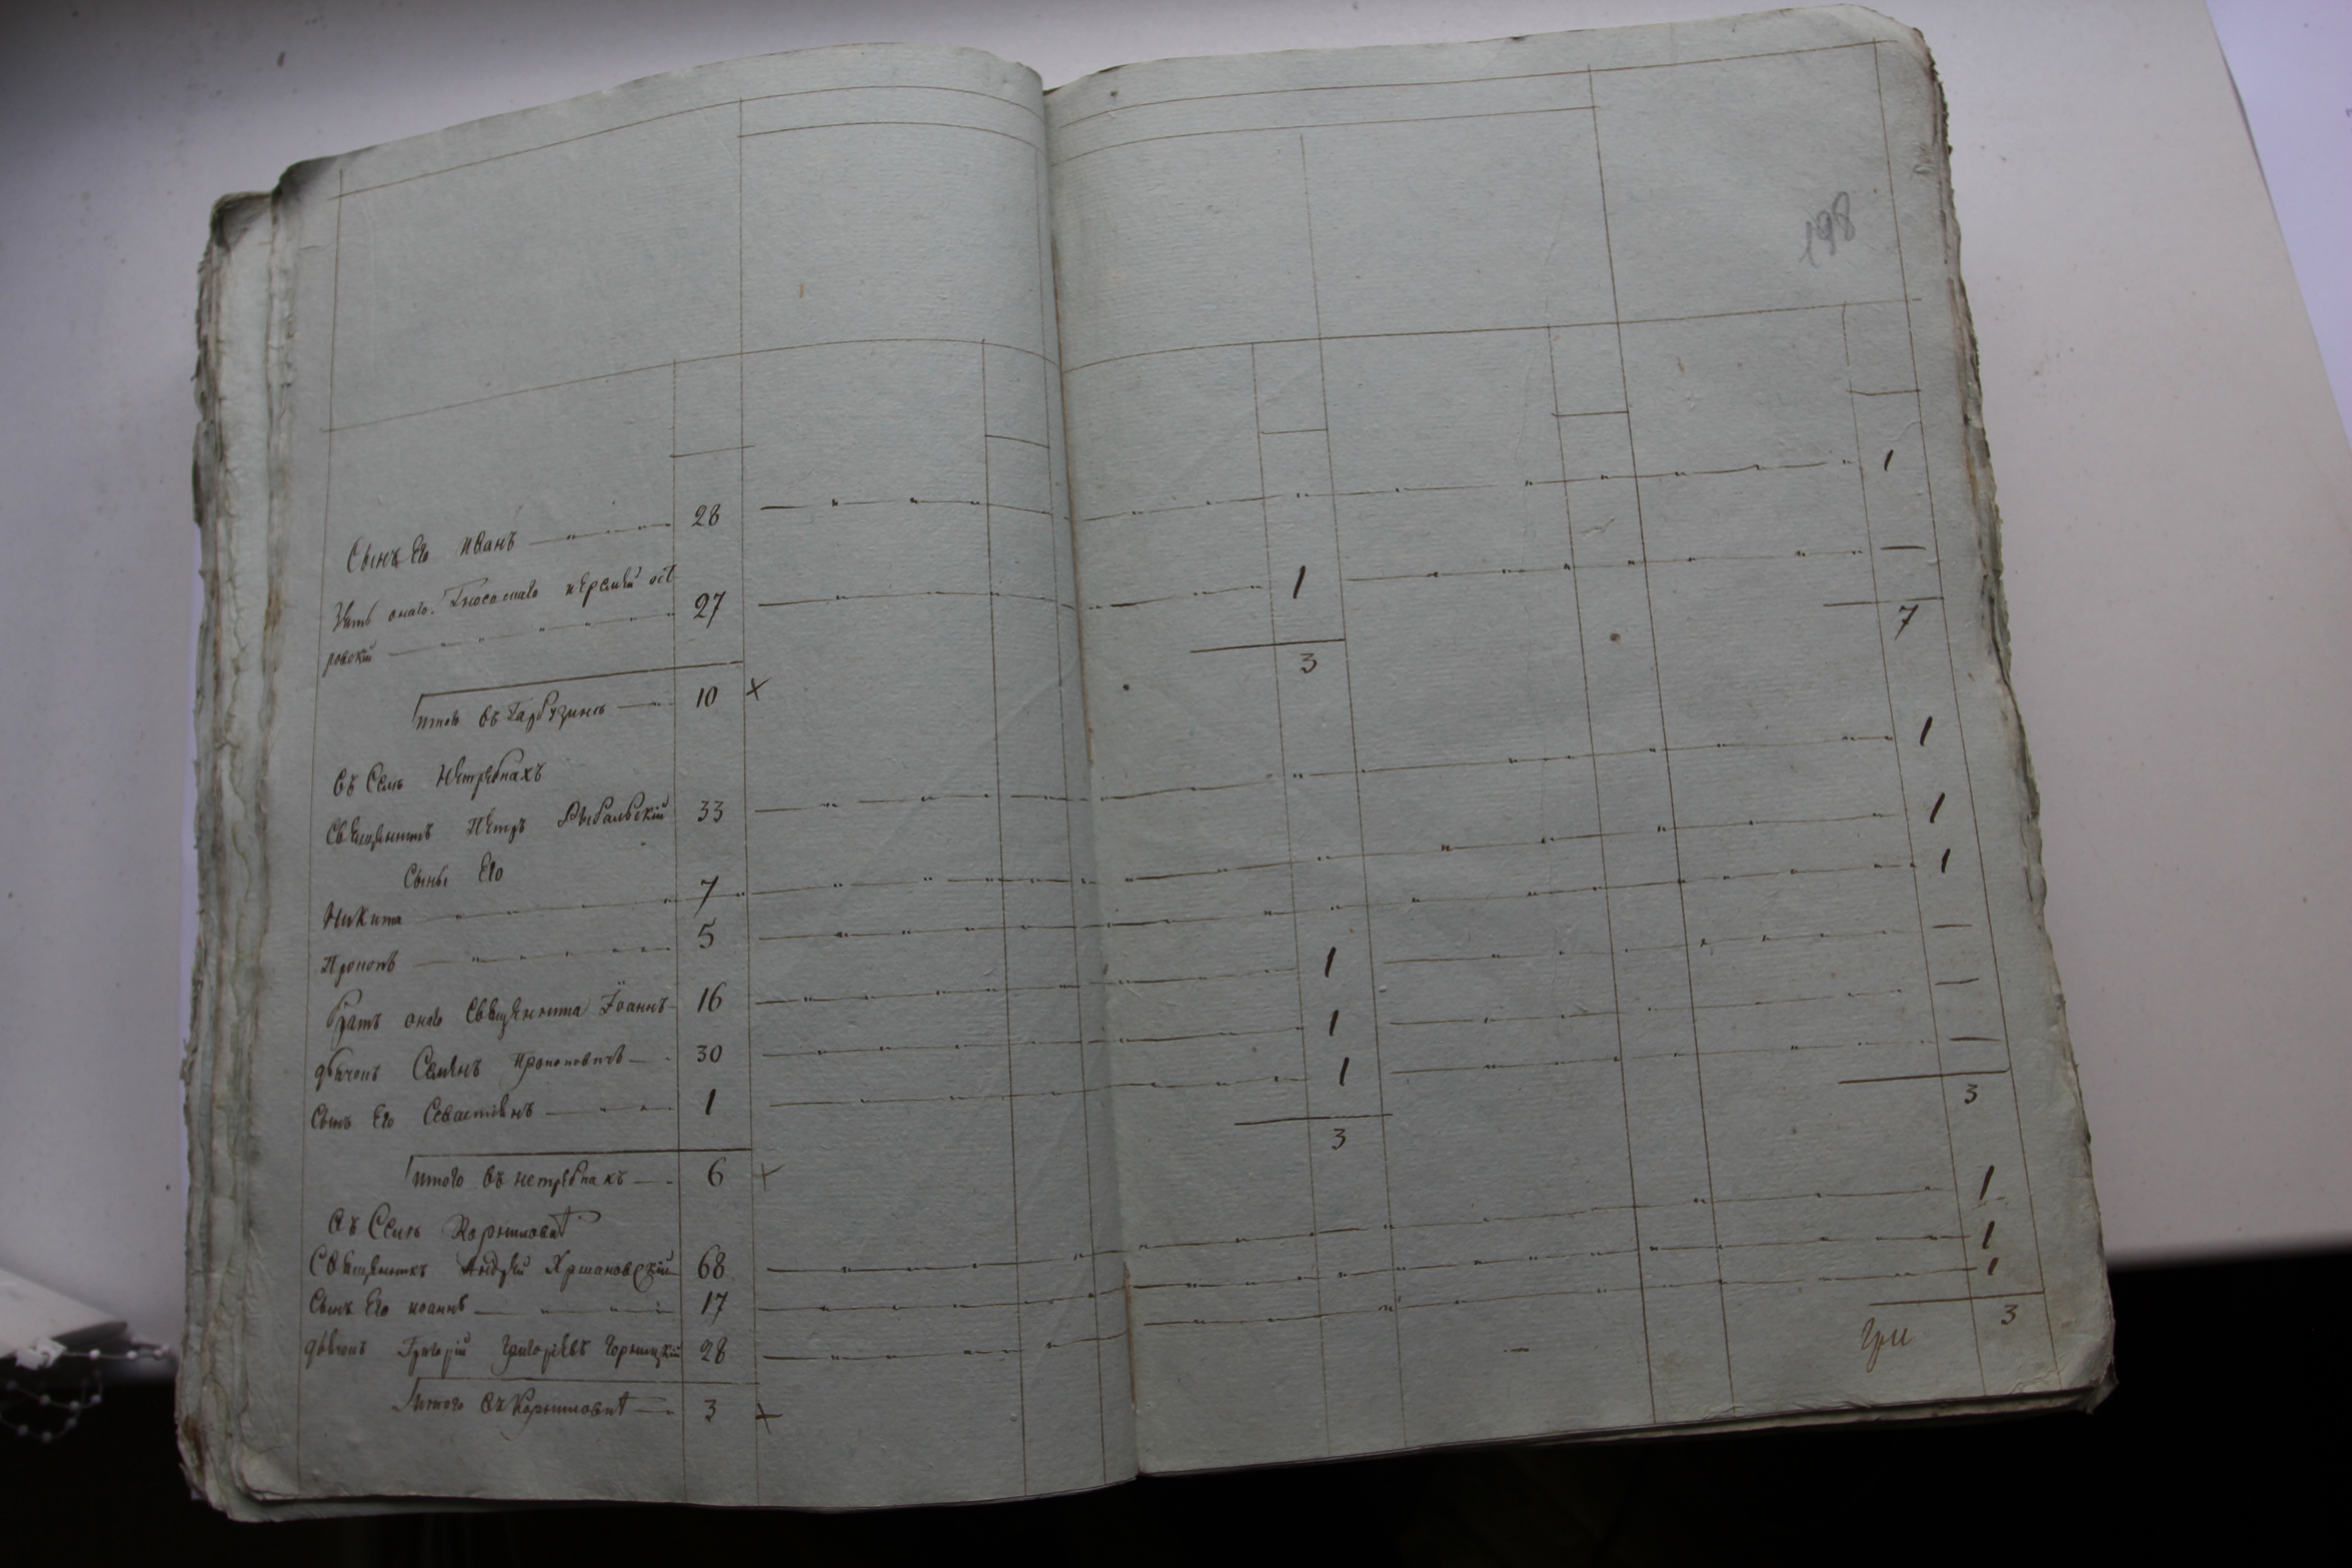 198
Сынъ Его иванъ 28 1
Зять онаго 27 1 —
ровскій
3 7
итого въ Гарбузинѣ 10 ×
въ Селѣ Нетребкахъ
Священникъ Петръ Рибальскій 33 1
Сыны Его
Никита 7 1
Прокопъ 5 1
братъ онаго Священника Іоаннъ 16 1 —
дьячокъ Семенъ Прокоповичъ 30 1 —
Сынъ Его Севастіянъ 1 1 —
3 3
итого въ нетребкахъ 6 ×
въ Селѣ
Священникъ Андрей Хршановскій 68 1
Сынъ Его иоаннъ 17 1
дьячокъ Григорій Григоріевъ 28 1
3
итого 3 ×